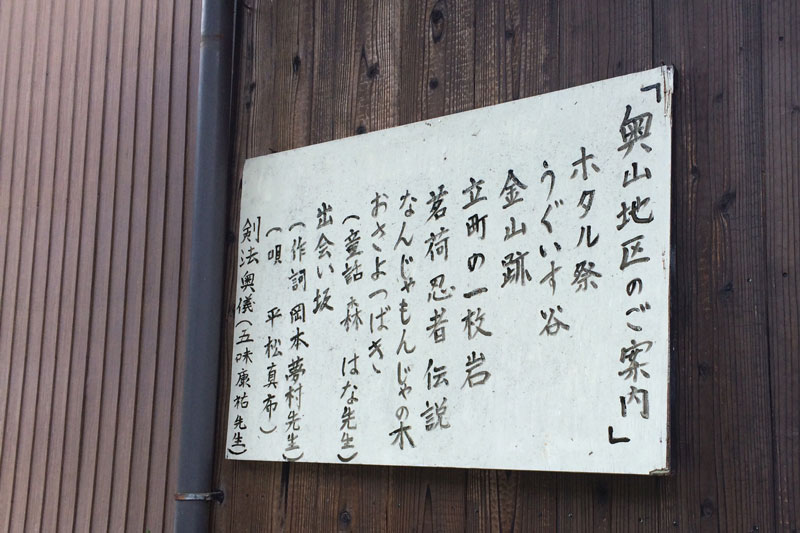 「奥山地区のご案内」
ホタル祭
うぐいす谷
金山跡
立町の一枚岩
茗荷忍者伝説
なんじゃもんじゃの木
おさよつばき
(童話 森 はな先生)
出会い坂
(作詞 岡本夢村先生)
(唄 平松真布)
剣法奥儀(五味康祐先生)